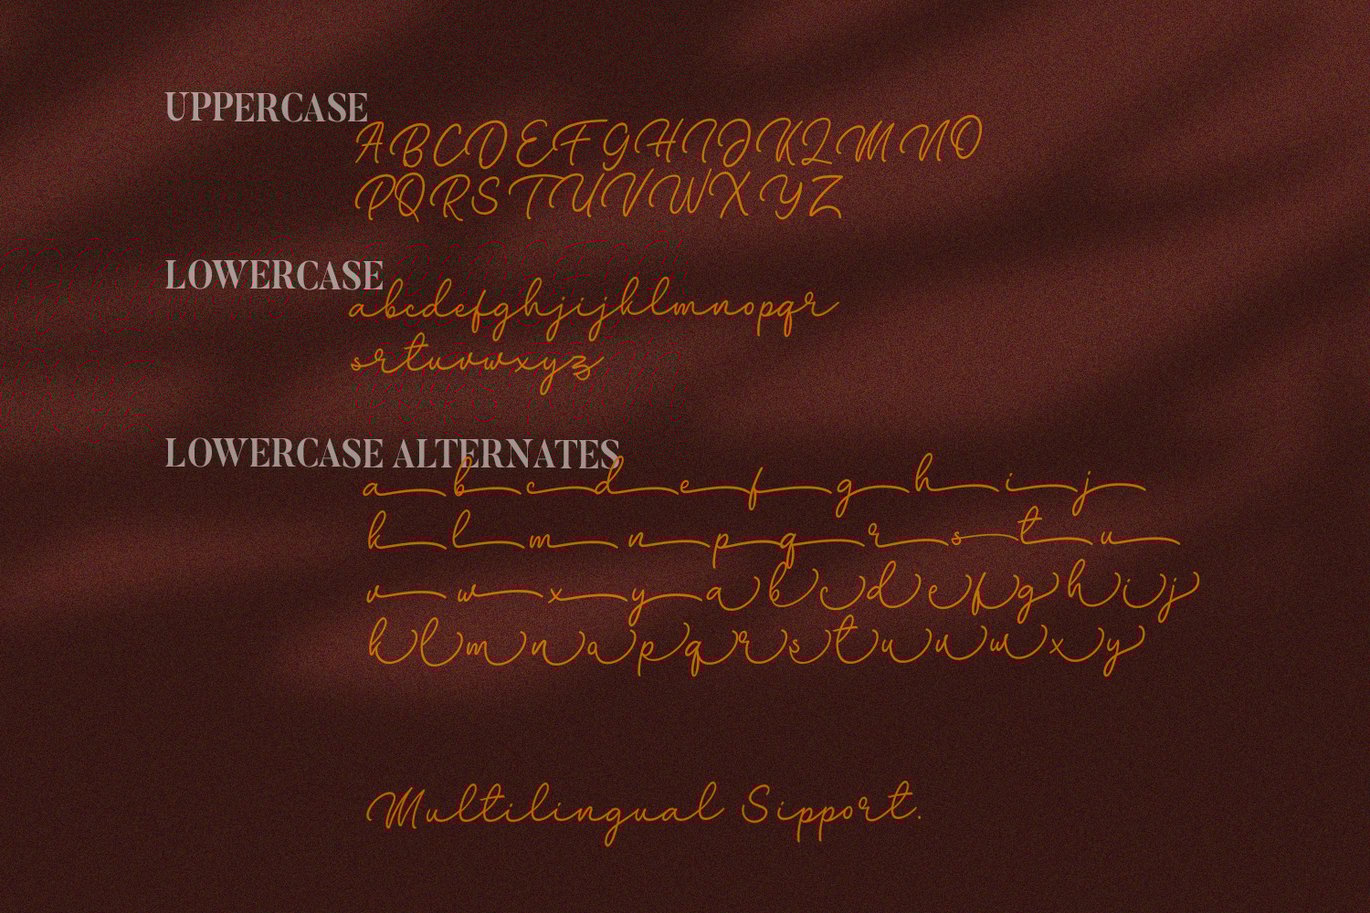 UPPERCASE
ABCDEFGHIJKLMNO
PQRSTUVWXYZ
LOWERCASE
abcdefghjijklmnopqr
srtuvwxyz
LOWERCASE ALTERNATES
a b c d e f g h i j
k l m n p q r s t u
v w x y a b c d e f g h i j
k l m n a p q r s t u u w x y
Multilingual Sipport.